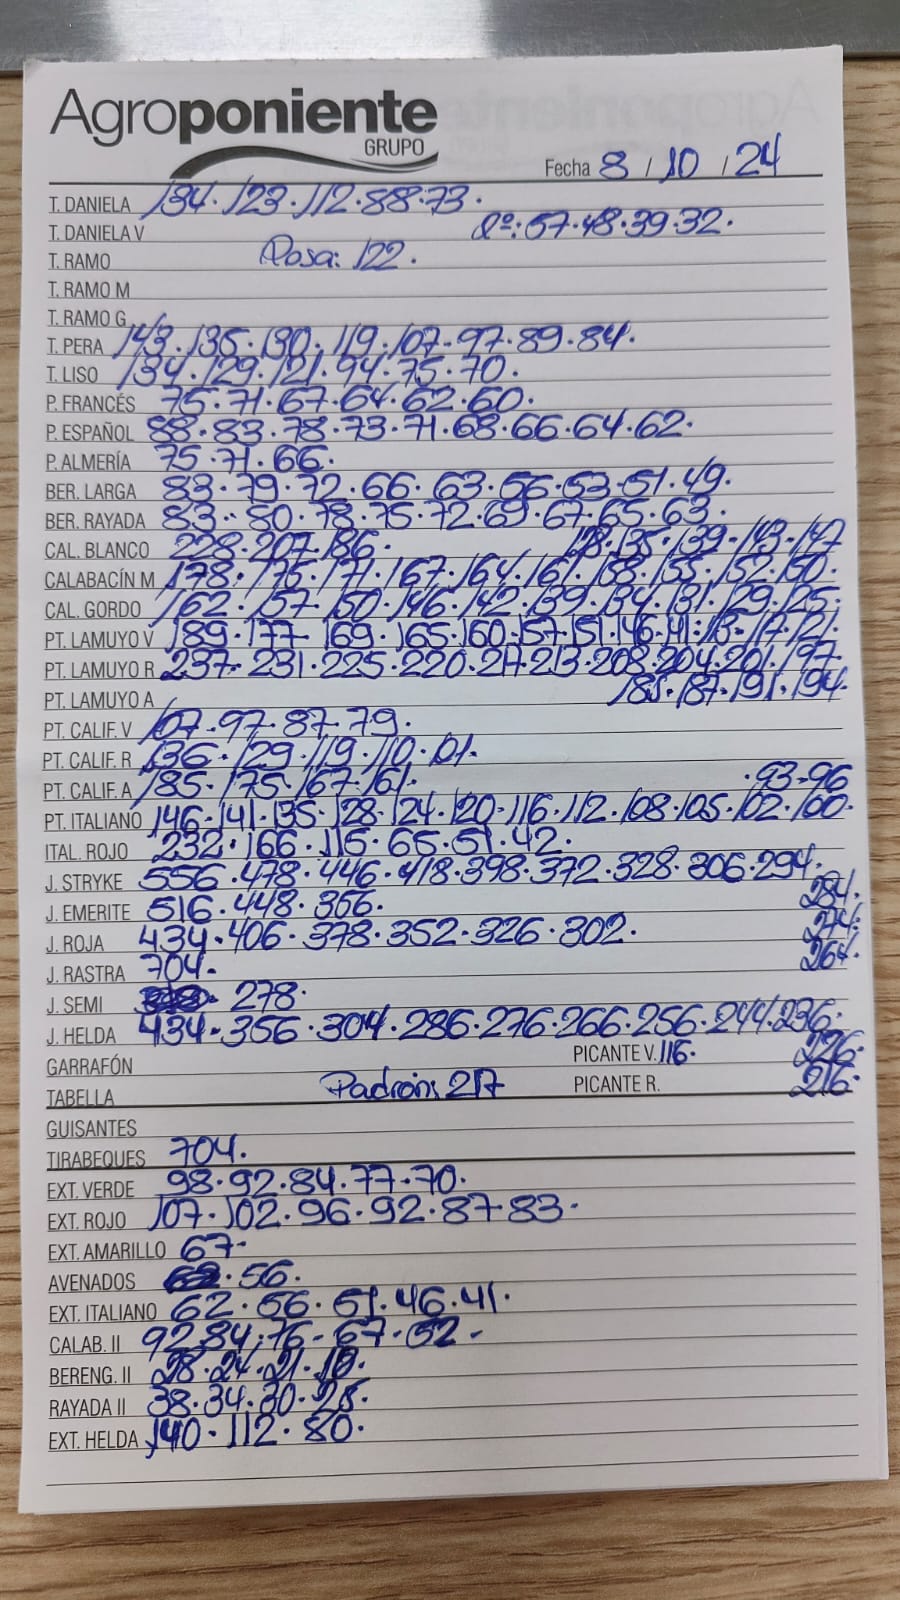 Agroponiente
GRUPO
Fecha 8 / 10 / 24
T. DANIELA 134. 123. 112. 88. 73.
T. DANIELA V 2º: 57. 48. 39. 32.
T. RAMO Rosa: 122.
T. RAMO M
T. RAMO G
T. PERA 143. 135. 130. 119. 107. 97. 89. 84.
T. LISO 134. 129. 121. 94. 75. 70.
P. FRANCÉS 75. 71. 67. 64. 62. 60.
P. ESPAÑOL 88. 83. 78. 73. 71. 68. 66. 64. 62.
P. ALMERÍA 75. 71. 66.
BER. LARGA 83. 79. 72. 66. 63. 56. 53. 51. 49.
BER. RAYADA 83. 80. 78. 75. 72. 69. 67. 65. 63.
CAL. BLANCO 228. 207. 186. 128. 135. 139. 143. 147
CALABACÍN M 178. 175. 171. 167. 164. 161. 158. 155. 152. 150.
CAL. GORDO 162. 157. 150. 146. 142. 139. 134. 131. 129. 125.
PT. LAMUYO V 189. 177. 169. 165. 160. 157. 151. 146. 141. 117. 121.
PT. LAMUYO R 237. 231. 225. 220. 217. 213. 208. 204. 201. 197.
PT. LAMUYO A 185. 187. 191. 194.
PT. CALIF. V 107. 97. 87. 79.
PT. CALIF. R 136. 129. 119. 110. 101.
PT. CALIF. A 185. 175. 167. 161. . 93. 96
PT. ITALIANO 146. 141. 135. 128. 124. 120. 116. 112. 108. 105. 102. 100.
ITAL. ROJO 232. 166. 116. 65. 51. 42.
J. STRYKE 556. 478. 446. 418. 398. 372. 328. 306. 294.
J. EMERITE 516. 448. 356. 284.
J. ROJA 434. 406. 378. 352. 326. 302. 274.
J. RASTRA 704. 264.
J. SEMI 278.
J. HELDA 434. 356. 304. 286. 276. 266. 256. 244. 236.
GARRAFÓN PICANTE V. 116. 226.
TABELLA Padrón: 217 PICANTE R. 216.
GUISANTES
TIRABEQUES 704.
EXT. VERDE 98. 92. 84. 77. 70.
EXT. ROJO 107. 102. 96. 92. 87. 83.
EXT. AMARILLO 67.
AVENADOS 56.
EXT. ITALIANO 62. 56. 51. 46. 41.
CALAB. II 92. 84. 76. 67. 52.
BERENG. II 28. 24. 21. 18.
RAYADA II 38. 34. 30. 25.
EXT. HELDA 140. 112. 80.